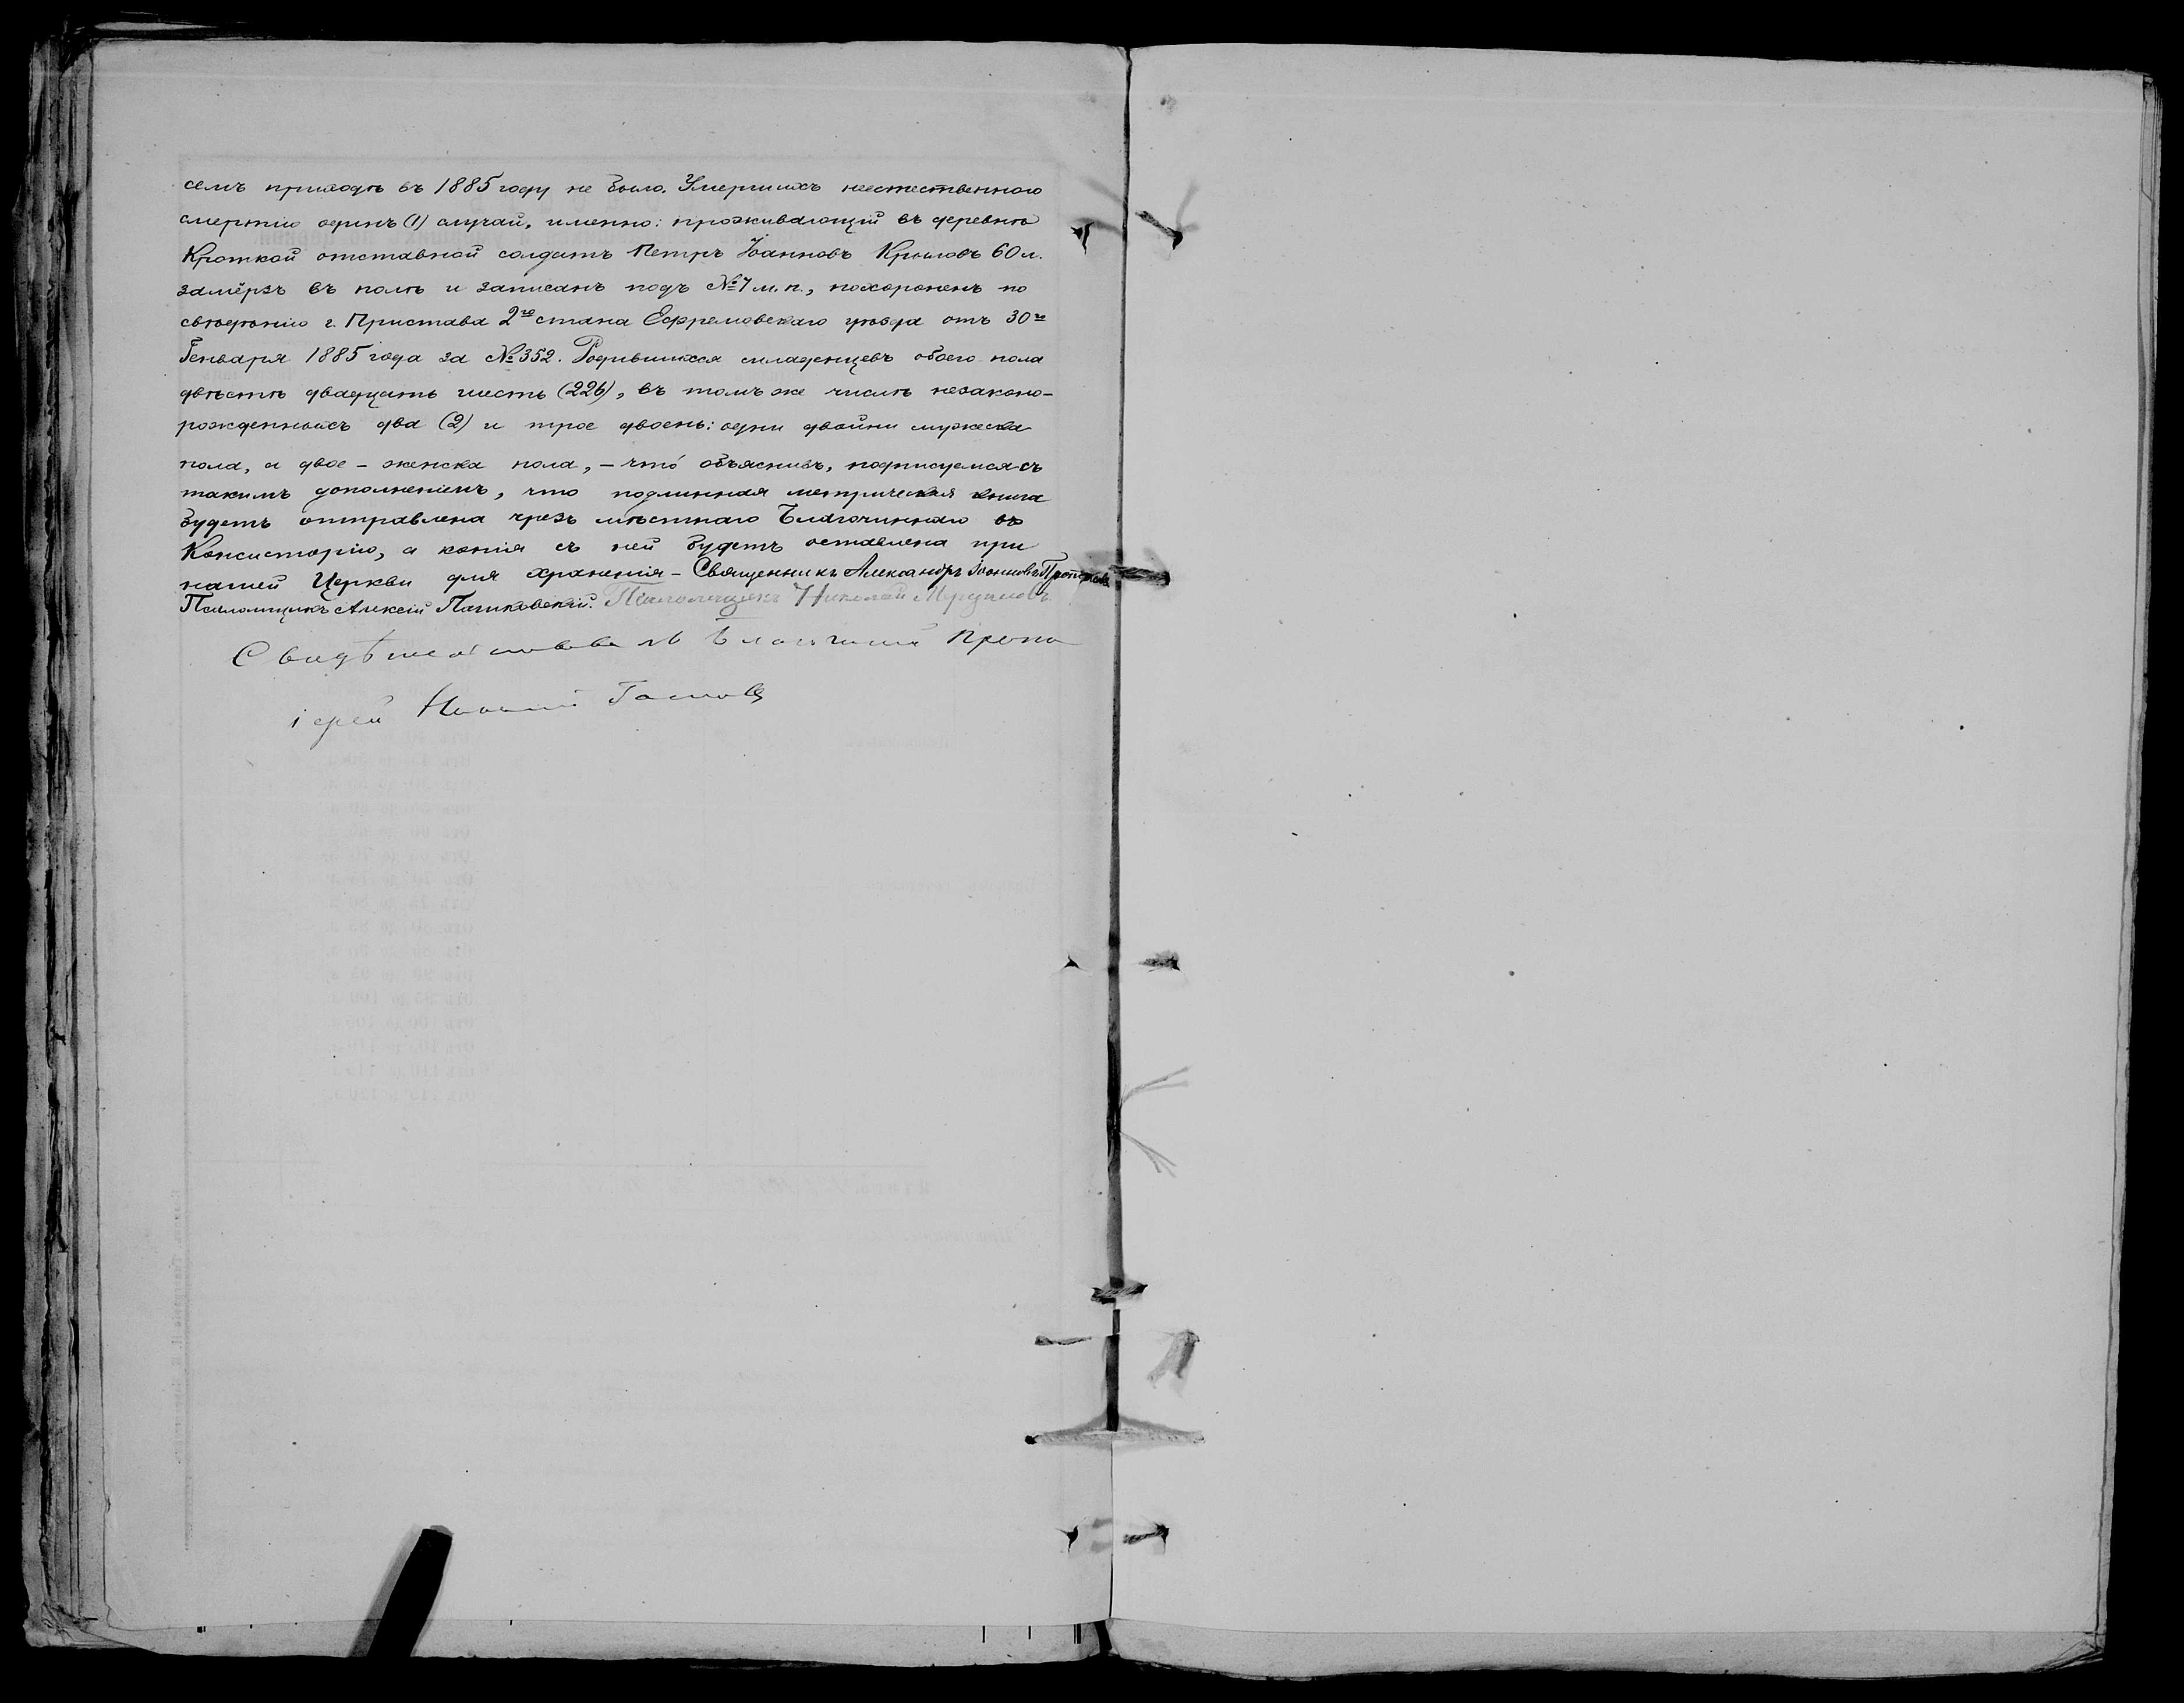 семъ приходѣ въ 1885 году не было. Умершихъ неестественною
смертію одинъ (1) случай, именно: проживающій въ деревнѣ
Кроткой отставной солдатъ Петръ Іоанновъ Крыловъ 60 л.
замёрзъ въ полѣ и записанъ подъ № 7 м. п., похороненъ по
свѣдѣнію г. Пристава 2го стана Ефремовскаго уѣзда отъ 30го
Генваря 1885 года за № 352. Родившихся младенцевъ обоего пола
двѣстѣ двадцать шесть (226), въ томъ же числѣ незаконо-
рожденныхъ два (2) и трое двоень: одни двойни мужеска
пола, а двое – женска пола, – что́ объяснивъ, подписуемся съ
такимъ дополненіемъ, что подлинная метрическая книга
будетъ отправлена чрезъ мѣстнаго Благочиннаго въ
Консисторію, а копія съ ней будетъ оставлена при
нашей Церкви для храненія – Священникъ Александръ Іоанновъ
Псаломщикъ Алексій Пашковскій. Псаломщикъ Николай
Свидѣтельствовалъ Благочинный Прото
іерей